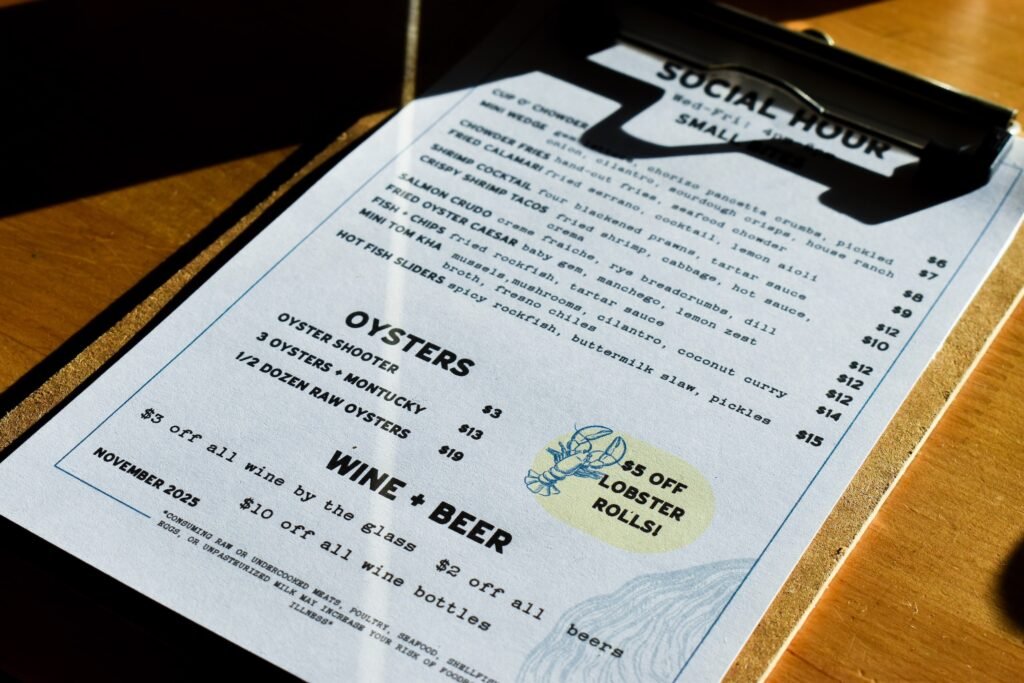 SOCIAL HOUR
Wed-Fri,
SMALL
CUP O' CHOWDER $6
MINI WEDGE chorizo pancetta crumbs, pickled
onion, cilantro, sourdough crisps, house ranch $7
CHOWDER FRIES hand-cut fries, seafood chowder $8
FRIED CALAMARI fried serrano, cocktail, lemon aioli $9
SHRIMP COCKTAIL four blackened prawns, tartar sauce $12
CRISPY SHRIMP TACOS fried shrimp, cabbage, hot sauce, $10
crema
SALMON CRUDO creme fraiche, rye breadcrumbs, dill $12
FRIED OYSTER CAESAR baby gem, manchego, lemon zest $12
FISH + CHIPS fried rockfish, tartar sauce $12
MINI TOM KHA mussels, mushrooms, cilantro, coconut curry $14
broth, fresno chiles
HOT FISH SLIDERS spicy rockfish, buttermilk slaw, pickles $15
OYSTERS
OYSTER SHOOTER $3
3 OYSTERS + MONTUCKY $13
1/2 DOZEN RAW OYSTERS $19
$5 OFF
LOBSTER
ROLLS!
WINE + BEER
$3 off all wine by the glass $2 off all beers
$10 off all wine bottles
NOVEMBER 2025
*CONSUMING RAW OR UNDERCOOKED MEATS, POULTRY, SEAFOOD, SHELLFISH
EGGS, OR UNPASTEURIZED MILK MAY INCREASE YOUR RISK OF
ILLNESS*